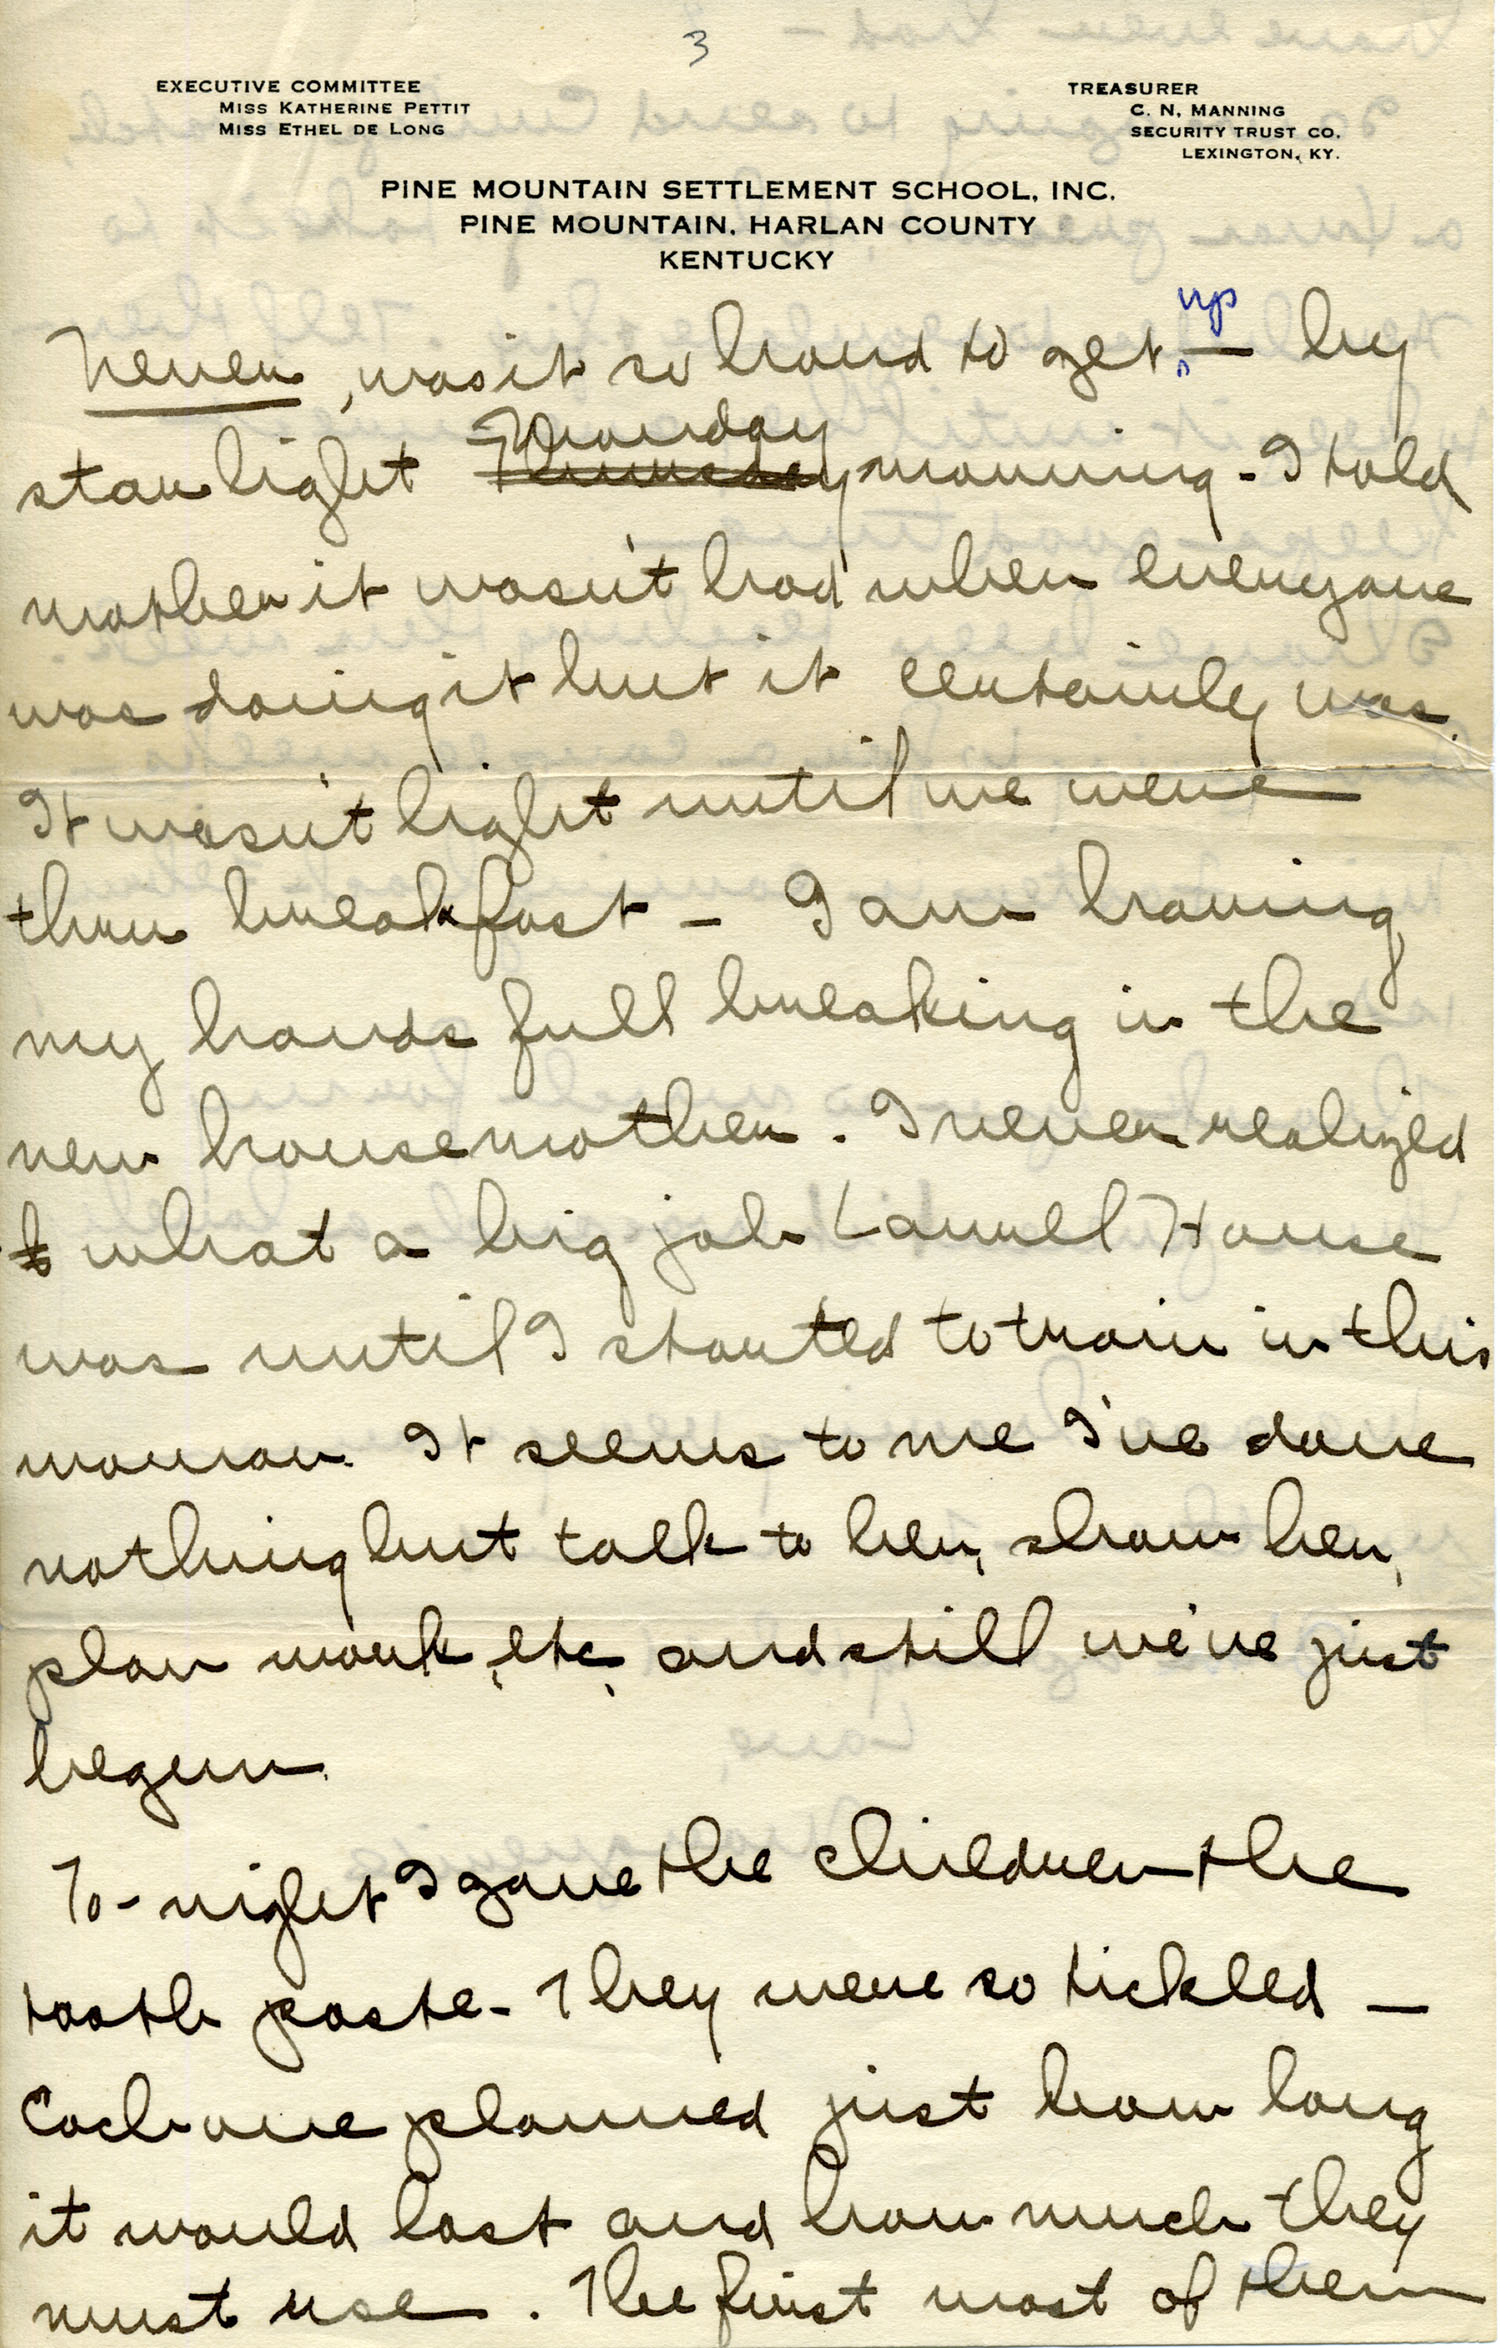 3
EXECUTIVE COMMITTEE
MISS KATHERINE PETTIT
MISS ETHEL DE LONG
TREASURER
C. N. MANNING
SECURITY TRUST CO.
LEXINGTON, KY.
PINE MOUNTAIN SETTLEMENT SCHOOL, INC.
PINE MOUNTAIN, HARLAN COUNTY
KENTUCKY
Never, was it so hard to get up by
star light Monday morning - I told
mother it wasn't bad when everyone
was doing it but it certainly was.
It wasn't light until we were
thru breakfast - I am having
my hands full breaking in the
new housemother. I never realized
what a big job Laurel House
was until I started to train in this
woman. It seems to me I've done
nothing but talk to her, show her,
plan work, etc, and still we've just
begun.
To-night I gave the children the
tooth paste - They were so tickled -
Each one planned just how long
it would last and how much they
must use. The first most of them